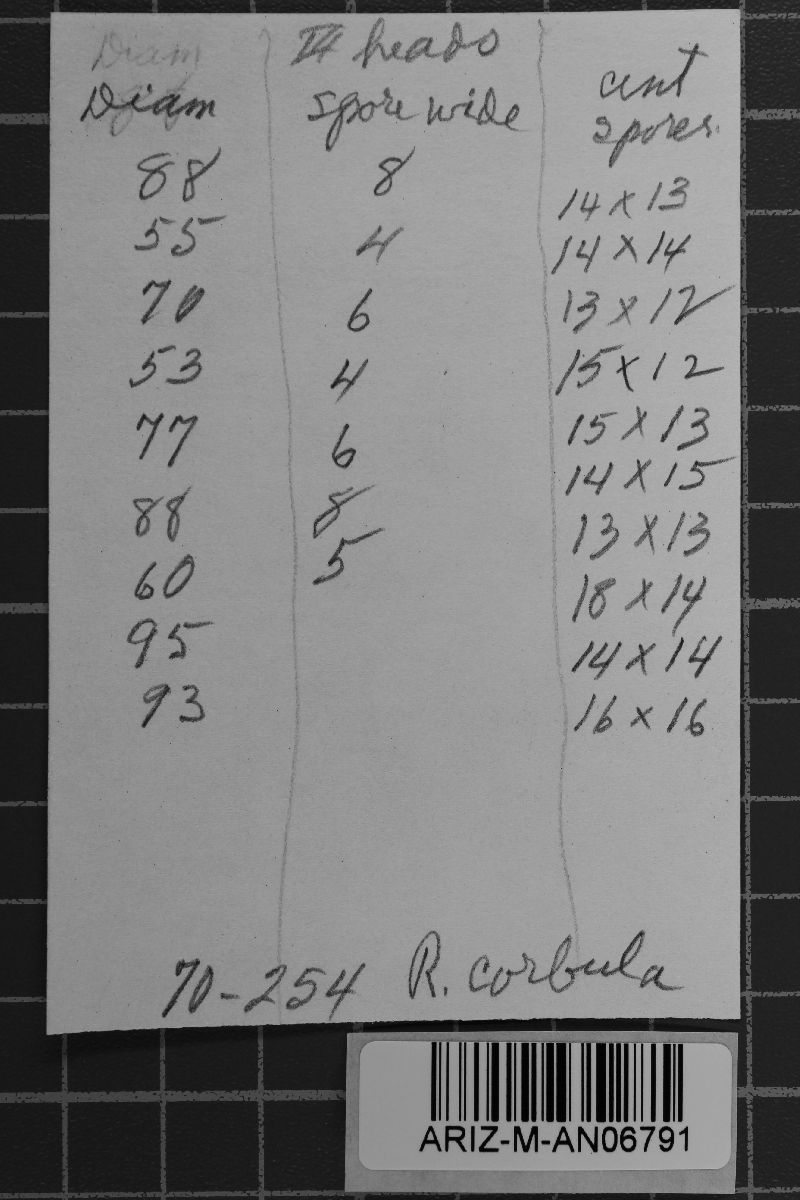 Diam
Diam
88
55
70
53
77
88
60
95
93
heads
spore wide
8
4
6
4
6
8
5
aent
spores.
14 x 13
14 x 14
13 x 12
15 x 12
15 x 13
14 x 15
13 x 13
18 x 14
14 x 14
16 x 16
70-254 R. corbula
ARIZ-M-AN06791